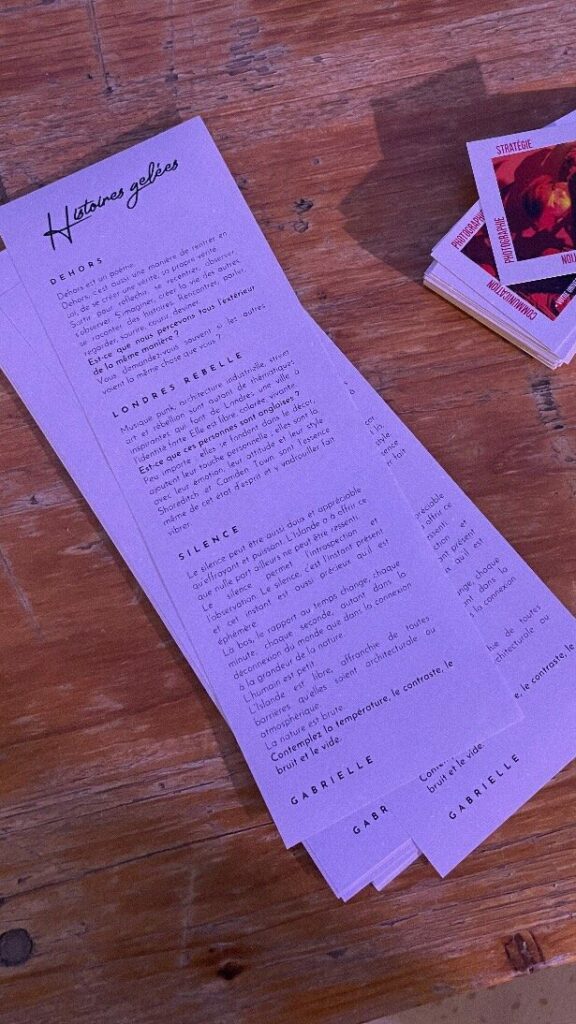 Histoires gelées
DEHORS
Dehors est un poème.
Dehors, c'est aussi une manière de rentrer en
soi, de se créer une vérité, sa propre vérité.
Sortir pour réfléchir, se recentrer, observer,
s'observer. S'imaginer, créer la vie des autres,
se raconter des histoires. Rencontrer, parler,
regarder, sourire, courir, deviner.
Est-ce que nous percevons tous l'extérieur
de la même manière ?
Vous demandez-vous souvent si les autres
voient la même chose que vous ?
LONDRES REBELLE
Musique punk, architecture industrielle, street
art et rébellion sont autant de thématiques
inspirantes qui font de Londres, une ville à
l'identité forte. Elle est libre, colorée, vivante.
Est-ce que ces personnes sont anglaises ?
Peu importe : elles se fondent dans le décor,
ajoutent leur touche personnelle ; elles sont là
avec leur émotion, leur attitude et leur style.
Shoreditch et Camden Town sont l'essence
même de cet état d'esprit et y vadrouiller fait
vibrer.
SILENCE
Le silence peut être aussi doux et appréciable
qu'effrayant et puissant. L'Islande a à offrir ce
que nulle part ailleurs ne peut être ressenti.
Le silence permet l'introspection et
l'observation. Le silence, c'est l'instant présent
et cet instant est aussi précieux qu'il est
éphémère.
Là bas, le rapport au temps change, chaque
minute, chaque seconde, autant dans la
déconnexion du monde que dans la connexion
à la grandeur de la nature.
L'humain est petit.
L'Islande est libre, affranchie de toutes
barrières qu'elles soient architecturale ou
atmosphérique.
La nature est brute.
Contemplez la température, le contraste, le
bruit et le vide.
GABRIELLE
GABR
cor,
là,
style.
ssence
er fait
réciable
offrir ce
enti.
on et
nt présent
qu'il est
nge, chaque
nt dans la
la connexion
hie de toutes
rchitecturale ou
e, le contraste, le
bruit et le vide.
GABRIELLE
STRATÉGIE
PHOTOGRAPHIE
NOU
PHOTOGRAPHIE
COMMUNICATION